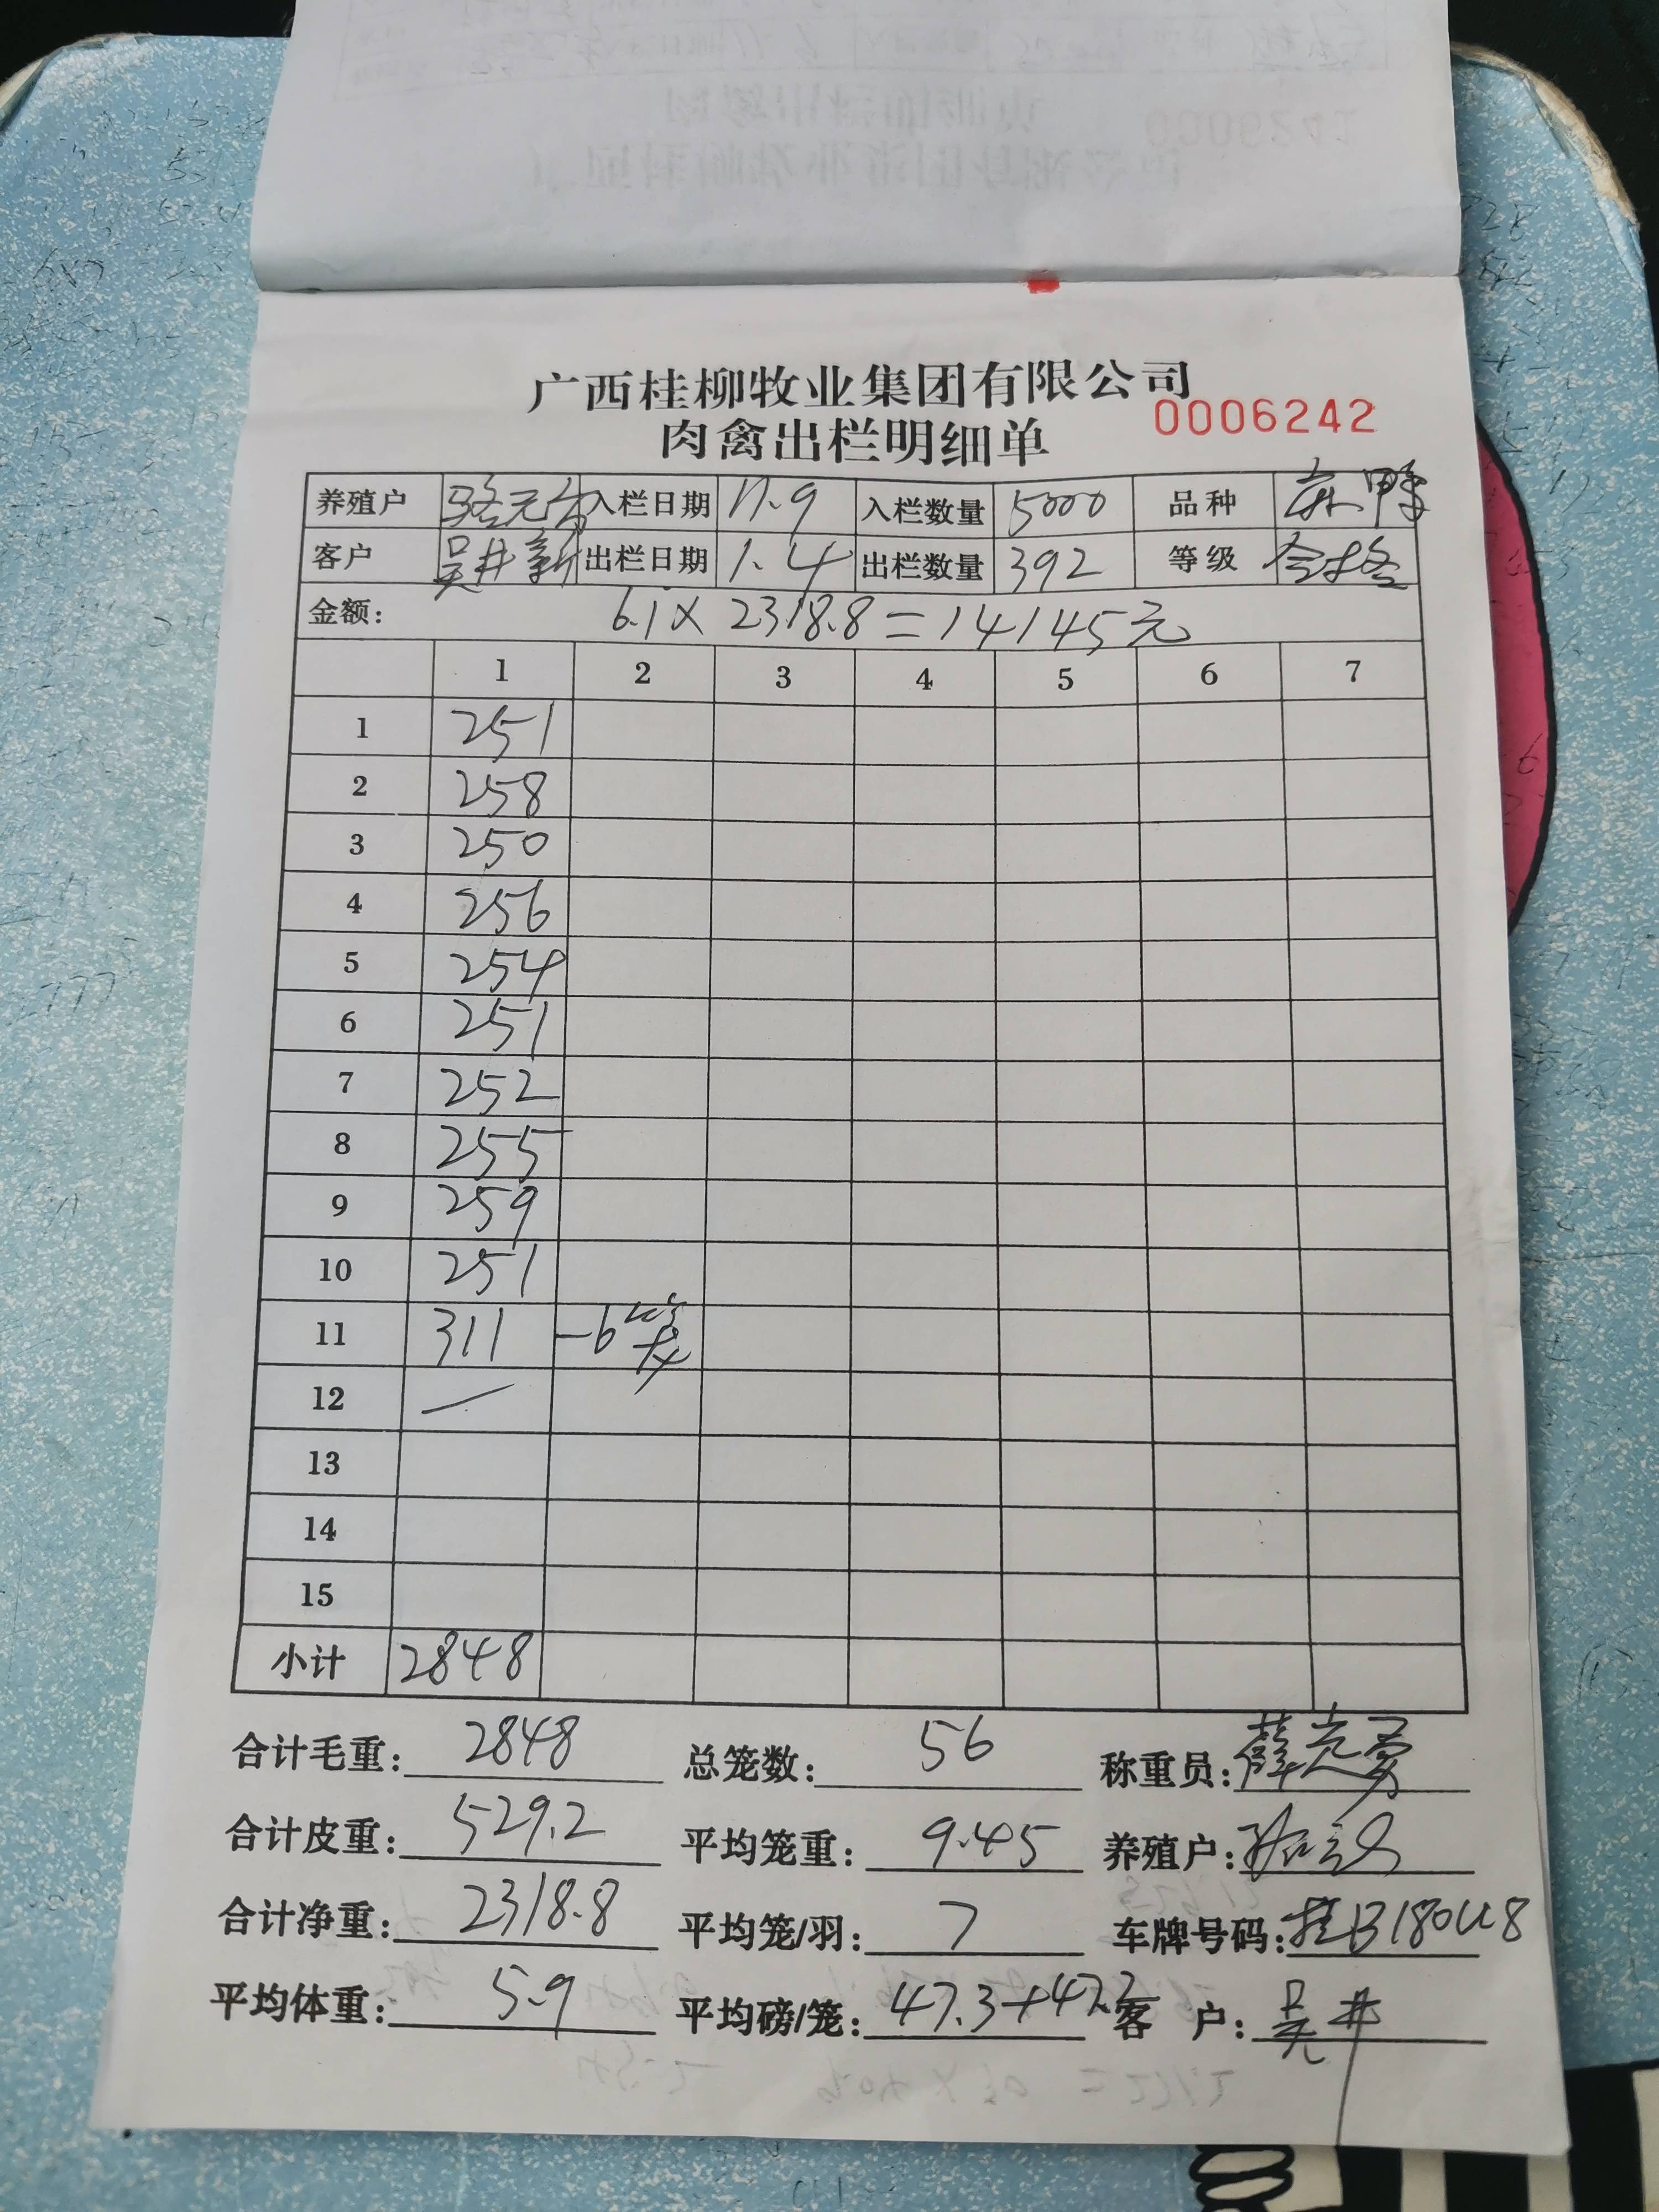 广西桂柳牧业集团有限公司
肉禽出栏明细单 0006242
养殖户 骆元 入栏日期 11.9 入栏数量 5000 品种 麻鸭
客户 吴井新 出栏日期 1.4 出栏数量 392 等级 合格
金额: 6.1×2318.8=14145元
1 2 3 4 5 6 7
1 251
2 258
3 250
4 256
5 254
6 251
7 252
8 255
9 259
10 251
11 311 -6笼
12 —
13
14
15
小计 2848
合计毛重: 2848 总笼数: 56 称重员:
合计皮重: 529.2 平均笼重: 9.45 养殖户:
合计净重: 2318.8 平均笼/羽: 7 车牌号码: 桂B180U8
平均体重: 5.9 平均磅/笼: 47.3+47.2 客户: 吴井